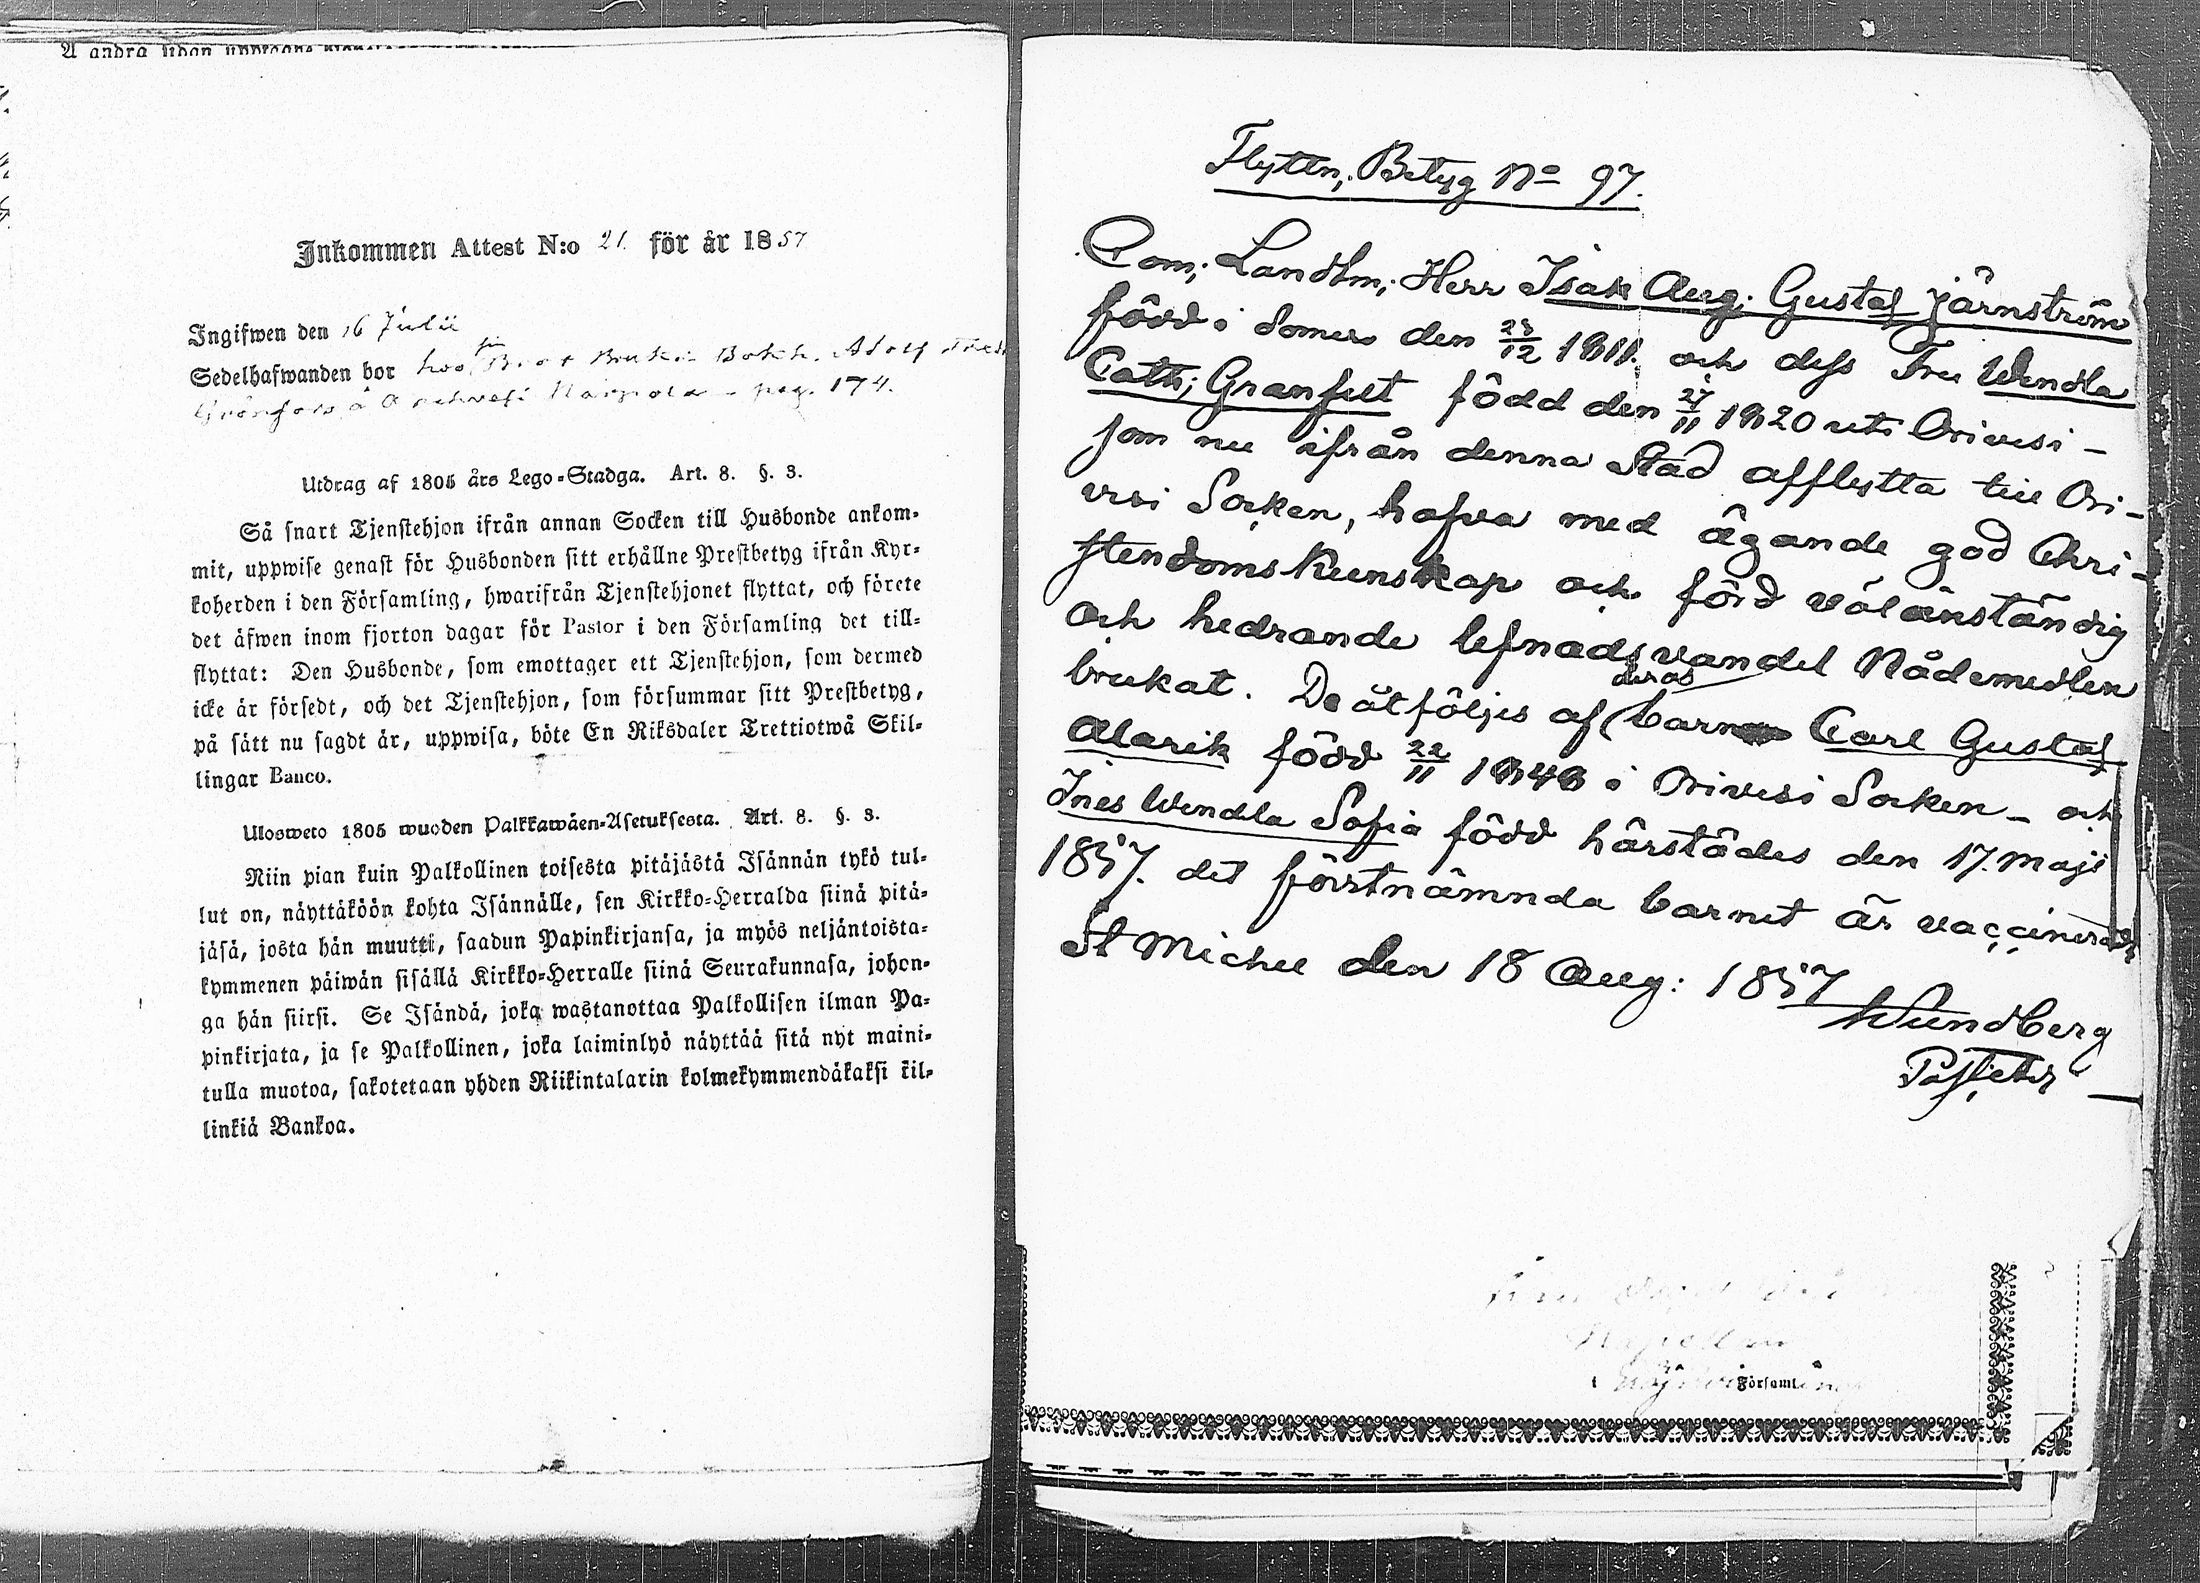 Inkommen Attest N:o 21. för år 1857
Ingifwen den 16 Julii
Sedelhafwanden bor hos Adolf
pag. 174.
Utdrag af 1805 års Lego-Stadga. Art. 8. §. 3.
Så snart Tjenstehjon ifrån annan Socken till Husbonde ankom-
mit, uppwise genast för Husbonden sitt erhållne Prestbetyg ifrån Kyr-
koherden i den Församling, hwarifrån Tjenstehjonet flyttat, och förete
det äfwen inom fjorton dagar för Pastor i den Församling det till-
flyttat: Den Husbonde, som emottager ett Tjenstehjon, som dermed
icke är försedt, och det Tjenstehjon, som försummar sitt Prestbetyg,
på sätt nu sagdt är, uppwisa, böte En Riksdaler Trettiotwå Skil-
lingar Banco.
Ulosweto 1805 wuoden Palkkawäen-Asetuksesta. Art. 8. §. 3.
Niin pian kuin Palkollinen toisesta pitäjästä Isännän tykö tul-
lut on, näyttäköön kohta Isännälle, sen Kirkko-Herralda siinä pitä-
jäsä, josta hän muutti, saadun Papinkirjansa, ja myös neljäntoista-
kymmenen päiwän sisällä Kirkko-Herralle siinä Seurakunnasa, johon-
ga hän siirsi. Se Isändä, joka wastanottaa Palkollisen ilman Pa-
pinkirjata, ja se Palkollinen, joka laiminlyö näyttää sitä nyt maini-
tulla muotoa, sakotetaan yhden Riikintalarin kolmekymmendäkaksi kil-
linkiä Bankoa.
Flyttn; Betyg No 97.
Com; Landtm; Herr Isak Aug; Gustaf Järnström
född i Somero den 23/12 1811. och dess Fru Wendla
Cath; Granfelt född den 27/11 1820 uti Orivesi -
som nu ifrån denna Stad afflytta till Ori-
vesi Socken, hafva med ägande god Chri-
stendoms Kunskap och förd välanständig
och hedrande lefnadsvandel Nådemedlen
brukat. De åtföljes af deras barn Carl Gustaf
Alarik född 22/11 1848 i Orivesi Socken - och
Ines Wendla Sofia född härstädes den 17. Maji
1857. det förstnämnda barnet är vaccineradt
St Michel den 18 Aug: 1857
Wundberg
Past:
Församling